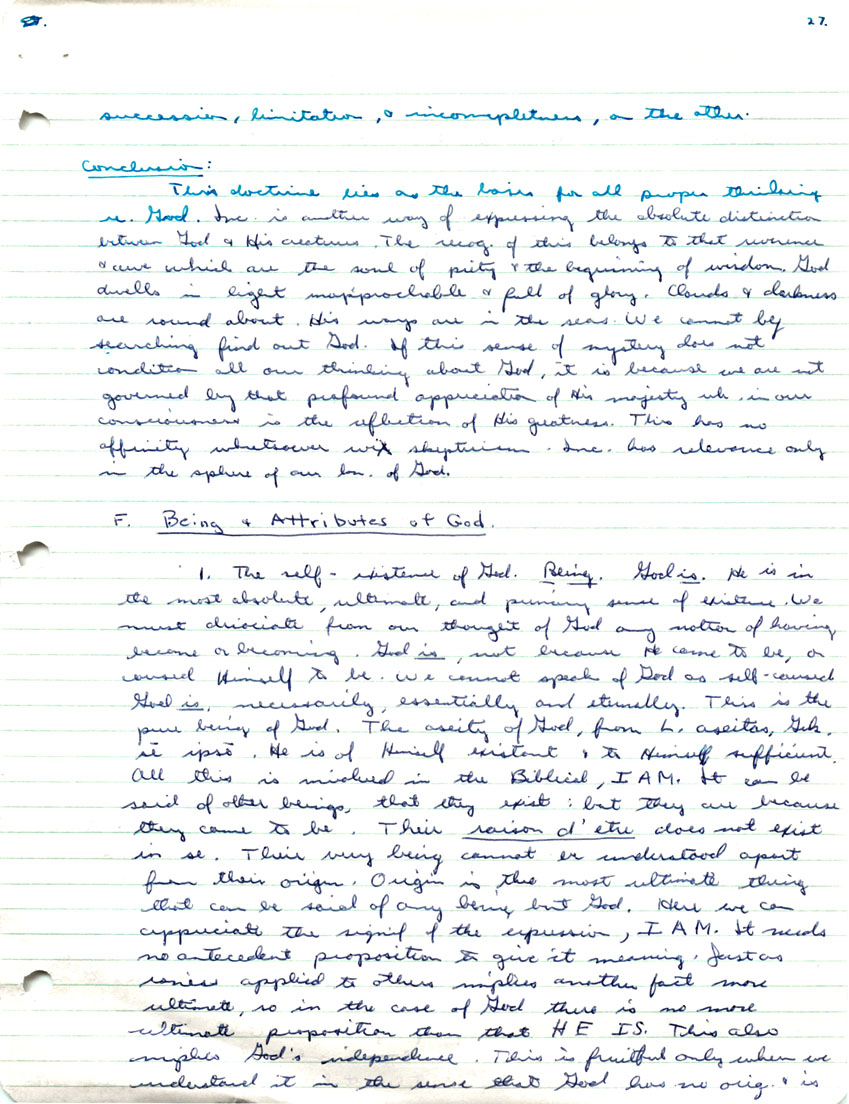 27.
succession, limitation, & incompletness, on the other.
Conclusion:
This doctrine lies as the basis for all proper thinking
re. God. Inc. is another way of expressing the absolute distinction
between God & His creatures. The recog. of this belongs to that reverence
& awe which are the soul of piety & the beginning of wisdom. God
dwells in light inapproachable & full of glory. Clouds & darkness
are round about. His ways are in the seas. We cannot by
searching find out God. If this sense of mystery does not
condition all our thinking about God, it is because we are not
governed by that profound appreciation of His majesty wh. in our
consciousness is the reflection of His greatness. This has no
affinity whatsoever with skepticism. Inc. has relevance only
in the sphere of our kn. of God.
F. Being & Attributes of God.
1. The self-existence of God. Being. God is. He is in
the most absolute, ultimate, and primary sense of existence. We
must dissociate from our thought of God any notion of having
become or becoming. God is, not because He came to be, or
caused Himself to be. We cannot speak of God as self-caused
God is, necessarily, essentially and eternally. This is the
pure being of God. The aseity of God, from L. aseitas,
ipso. He is of Himself existant & to Himself sufficient.
All this is involved in the Biblical, I AM. It can be
said of other beings, that they exist: but they are because
they came to be. Their raison d'etre does not exist
in se. Their very being cannot be understood apart
from their origin. Origin is the most ultimate thing
that can be said of any being but God. Here we can
appreciate the signif of the expression, I AM. It needs
no antecedent proposition to give it meaning. Just as
applied to others implies another fact more
ultimate, so in the case of God there is no more
ultimate proposition than that HE IS. This also
implies God's independence. This is fruitful only when we
understand it in the sense that God has no orig. & is